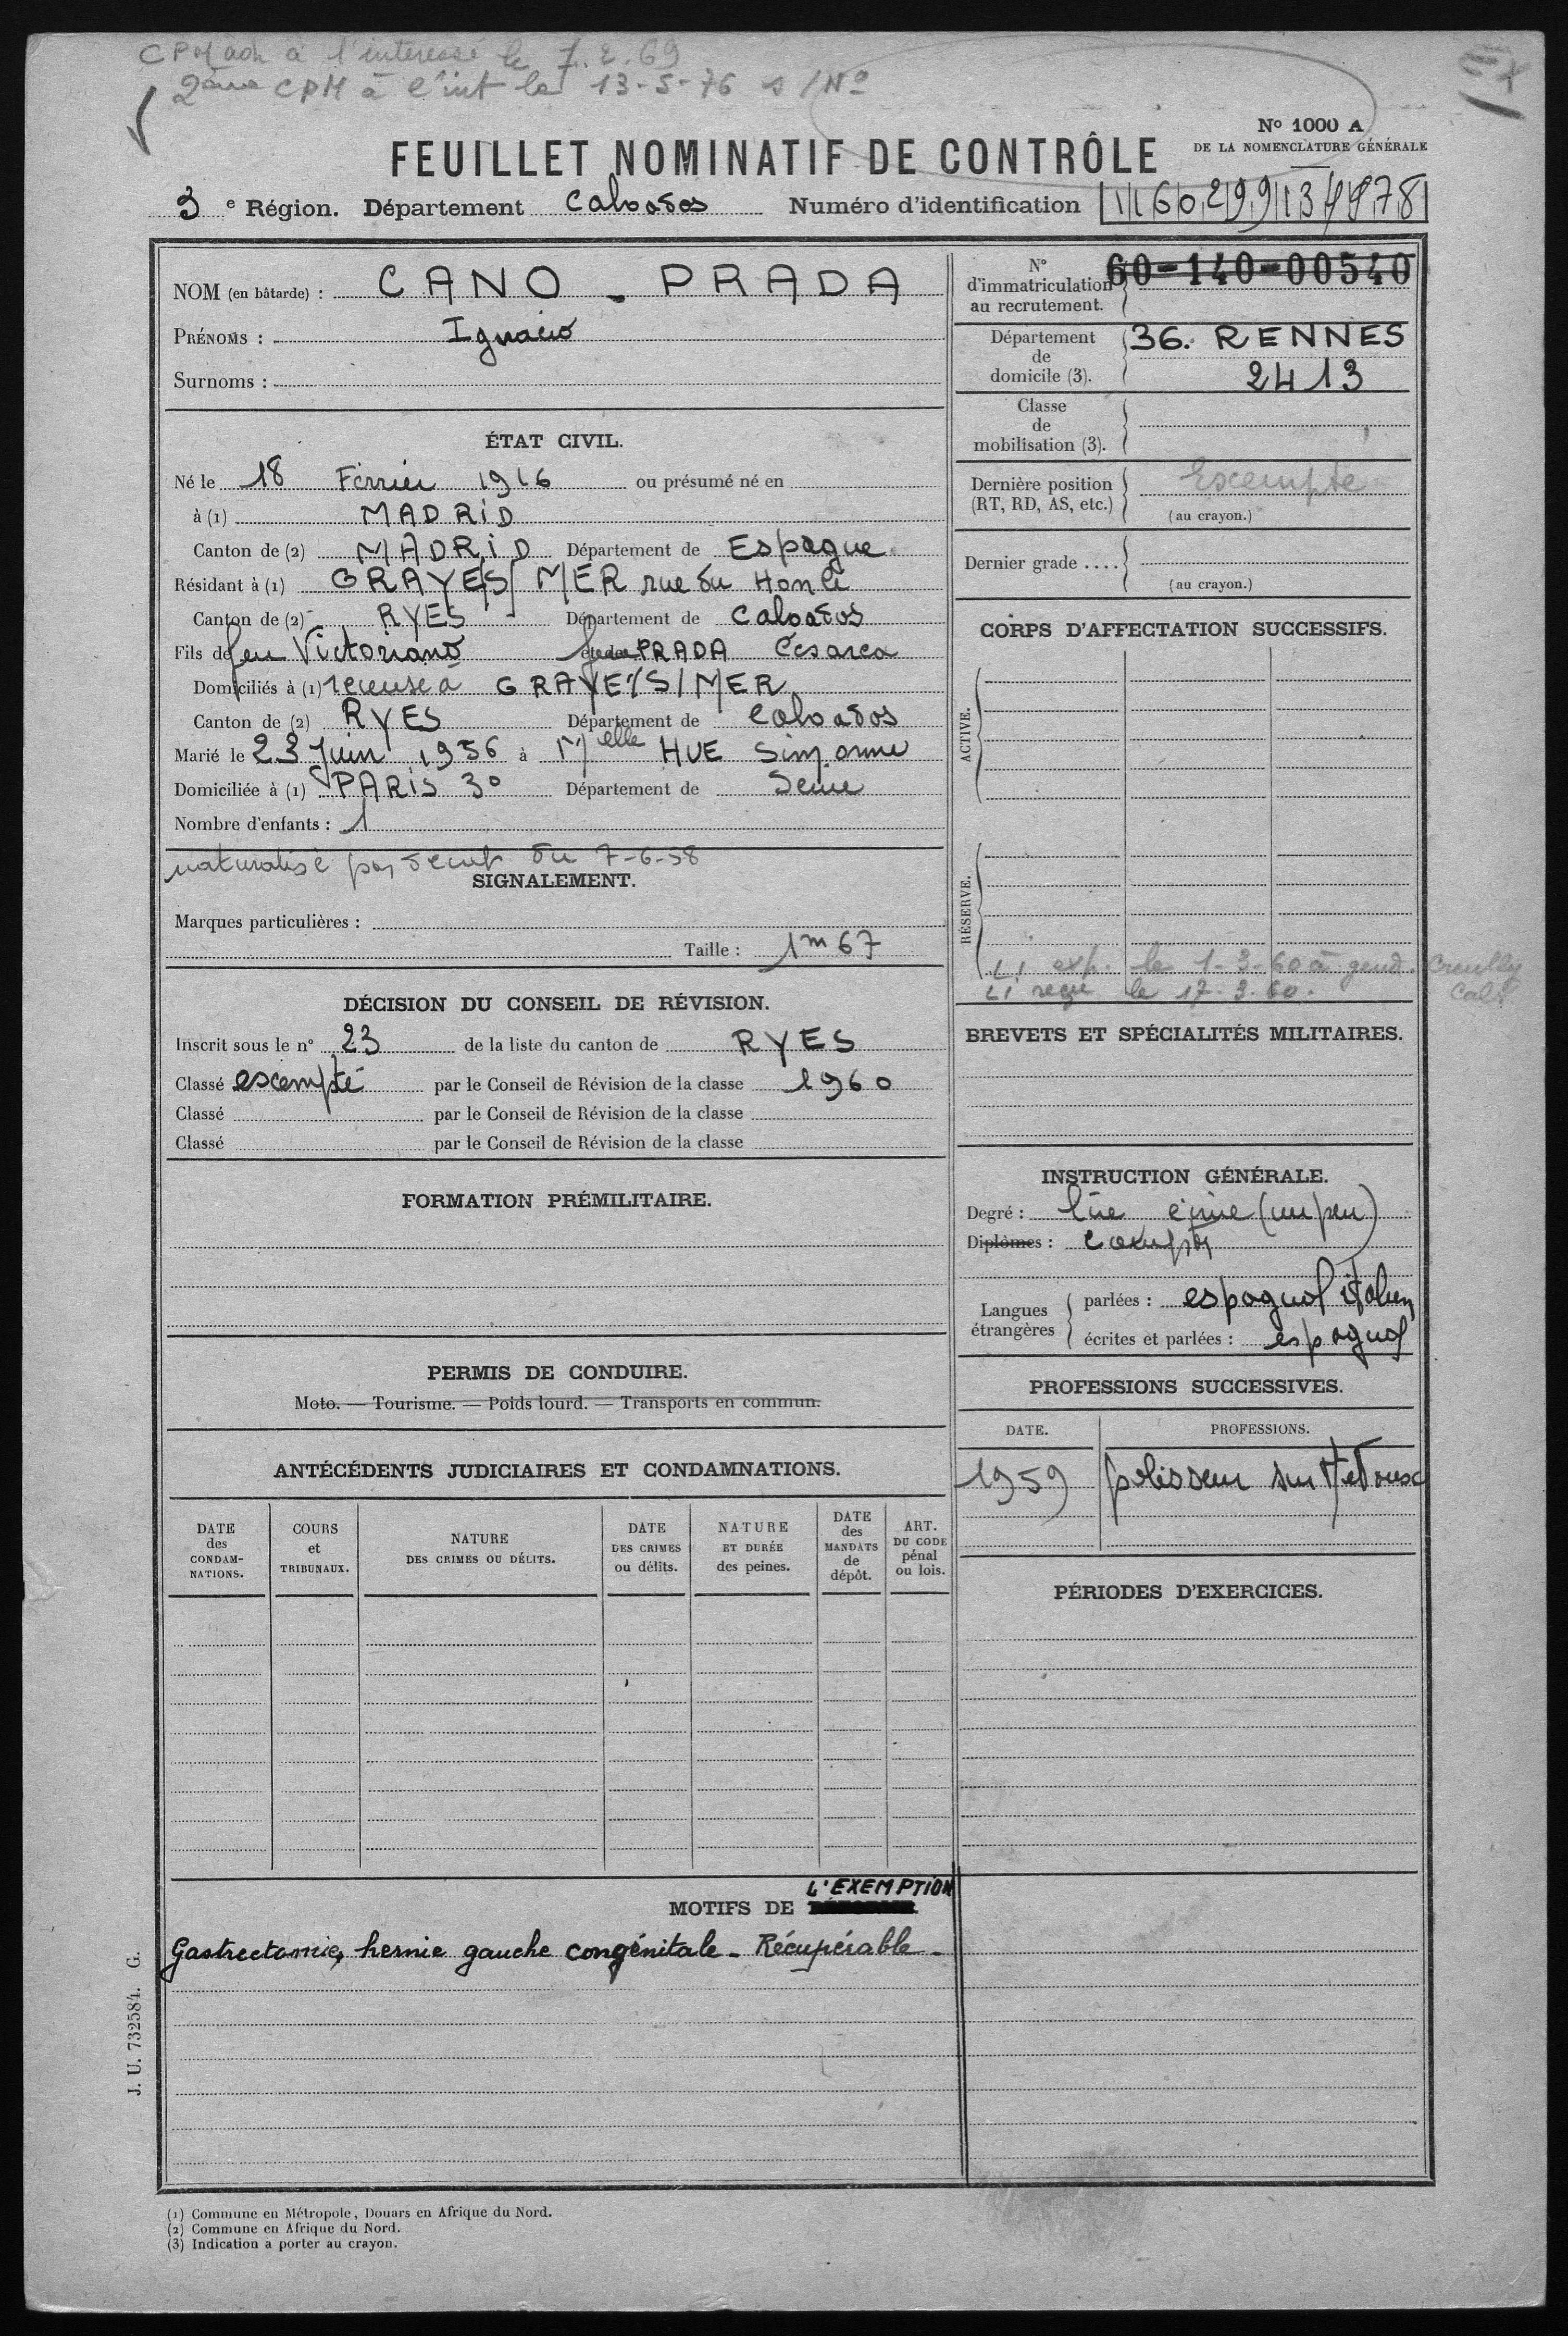 CPM adr à l'intéressé le 7.2.69
2ème CPM à l'int le 13-5-76 s/No
No 1000 A
DE LA NOMENCLATURE GÉNÉRALE
FEUILLET NOMINATIF DE CONTRÔLE
3 e Région. Département Calvados Numéro d'identification
NOM (en bâtarde) : CANO - PRADA
PRÉNOMS : Ignacio
Surnoms :
ÉTAT CIVIL.
Né le 18 Février 1916 ou présumé né en
à (1) MADRID
Canton de (2) MADRID Département de Espagne
Résidant à (1) GRAYES/MER rue du
Canton de (2) RYES Département de Calvados
Fils de feu Victoriano et de PRADA Césarea
Domiciliés à (1) GRAYE/S/MER
Canton de (2) RYES Département de Calvados
Marié le 23 Juin 1956 à Melle HUE Simonne
Domiciliée à (1) PARIS 3° Département de Seine
Nombre d'enfants : 1
naturalisé par décret du 7-6-58
SIGNALEMENT.
Marques particulières :
Taille : 1m67
DÉCISION DU CONSEIL DE RÉVISION.
Inscrit sous le n° 23 de la liste du canton de RYES
Classé exempté par le Conseil de Révision de la classe 1960
Classé par le Conseil de Révision de la classe
Classé par le Conseil de Révision de la classe
FORMATION PRÉMILITAIRE.
PERMIS DE CONDUIRE.
Moto. — Tourisme. — Poids lourd. — Transports en commun.
ANTÉCÉDENTS JUDICIAIRES ET CONDAMNATIONS.
DATE des CONDAMNATIONS.
COURS et TRIBUNAUX.
NATURE DES CRIMES OU DÉLITS.
DATE DES CRIMES ou délits.
NATURE ET DURÉE des peines.
DATE des MANDATS de dépôt.
ART. DU CODE pénal ou lois.
MOTIFS DE L'EXEMPTION
Gastrectomie, hernie gauche congénitale - Récupérable -
N° d'immatriculation au recrutement. 60-140-00540
Département de domicile (3). 36. RENNES
2413
Classe de mobilisation (3).
Dernière position (RT, RD, AS, etc.) Exempté
(au crayon.)
Dernier grade ....
(au crayon.)
CORPS D'AFFECTATION SUCCESSIFS.
ACTIVE.
RÉSERVE.
LI exp. le 1-3-60 à gend. Creully
LI reçu le 17-3-60. Calv.
BREVETS ET SPÉCIALITÉS MILITAIRES.
INSTRUCTION GÉNÉRALE.
Degré : lire écrire (un peu)
Diplômes : compter
Langues étrangères
parlées : espagnol italien
écrites et parlées : espagnol
PROFESSIONS SUCCESSIVES.
DATE. PROFESSIONS.
1959 polisseur sur
PÉRIODES D'EXERCICES.
J. U. 732584. G.
(1) Commune en Métropole, Douars en Afrique du Nord.
(2) Commune en Afrique du Nord.
(3) Indication à porter au crayon.